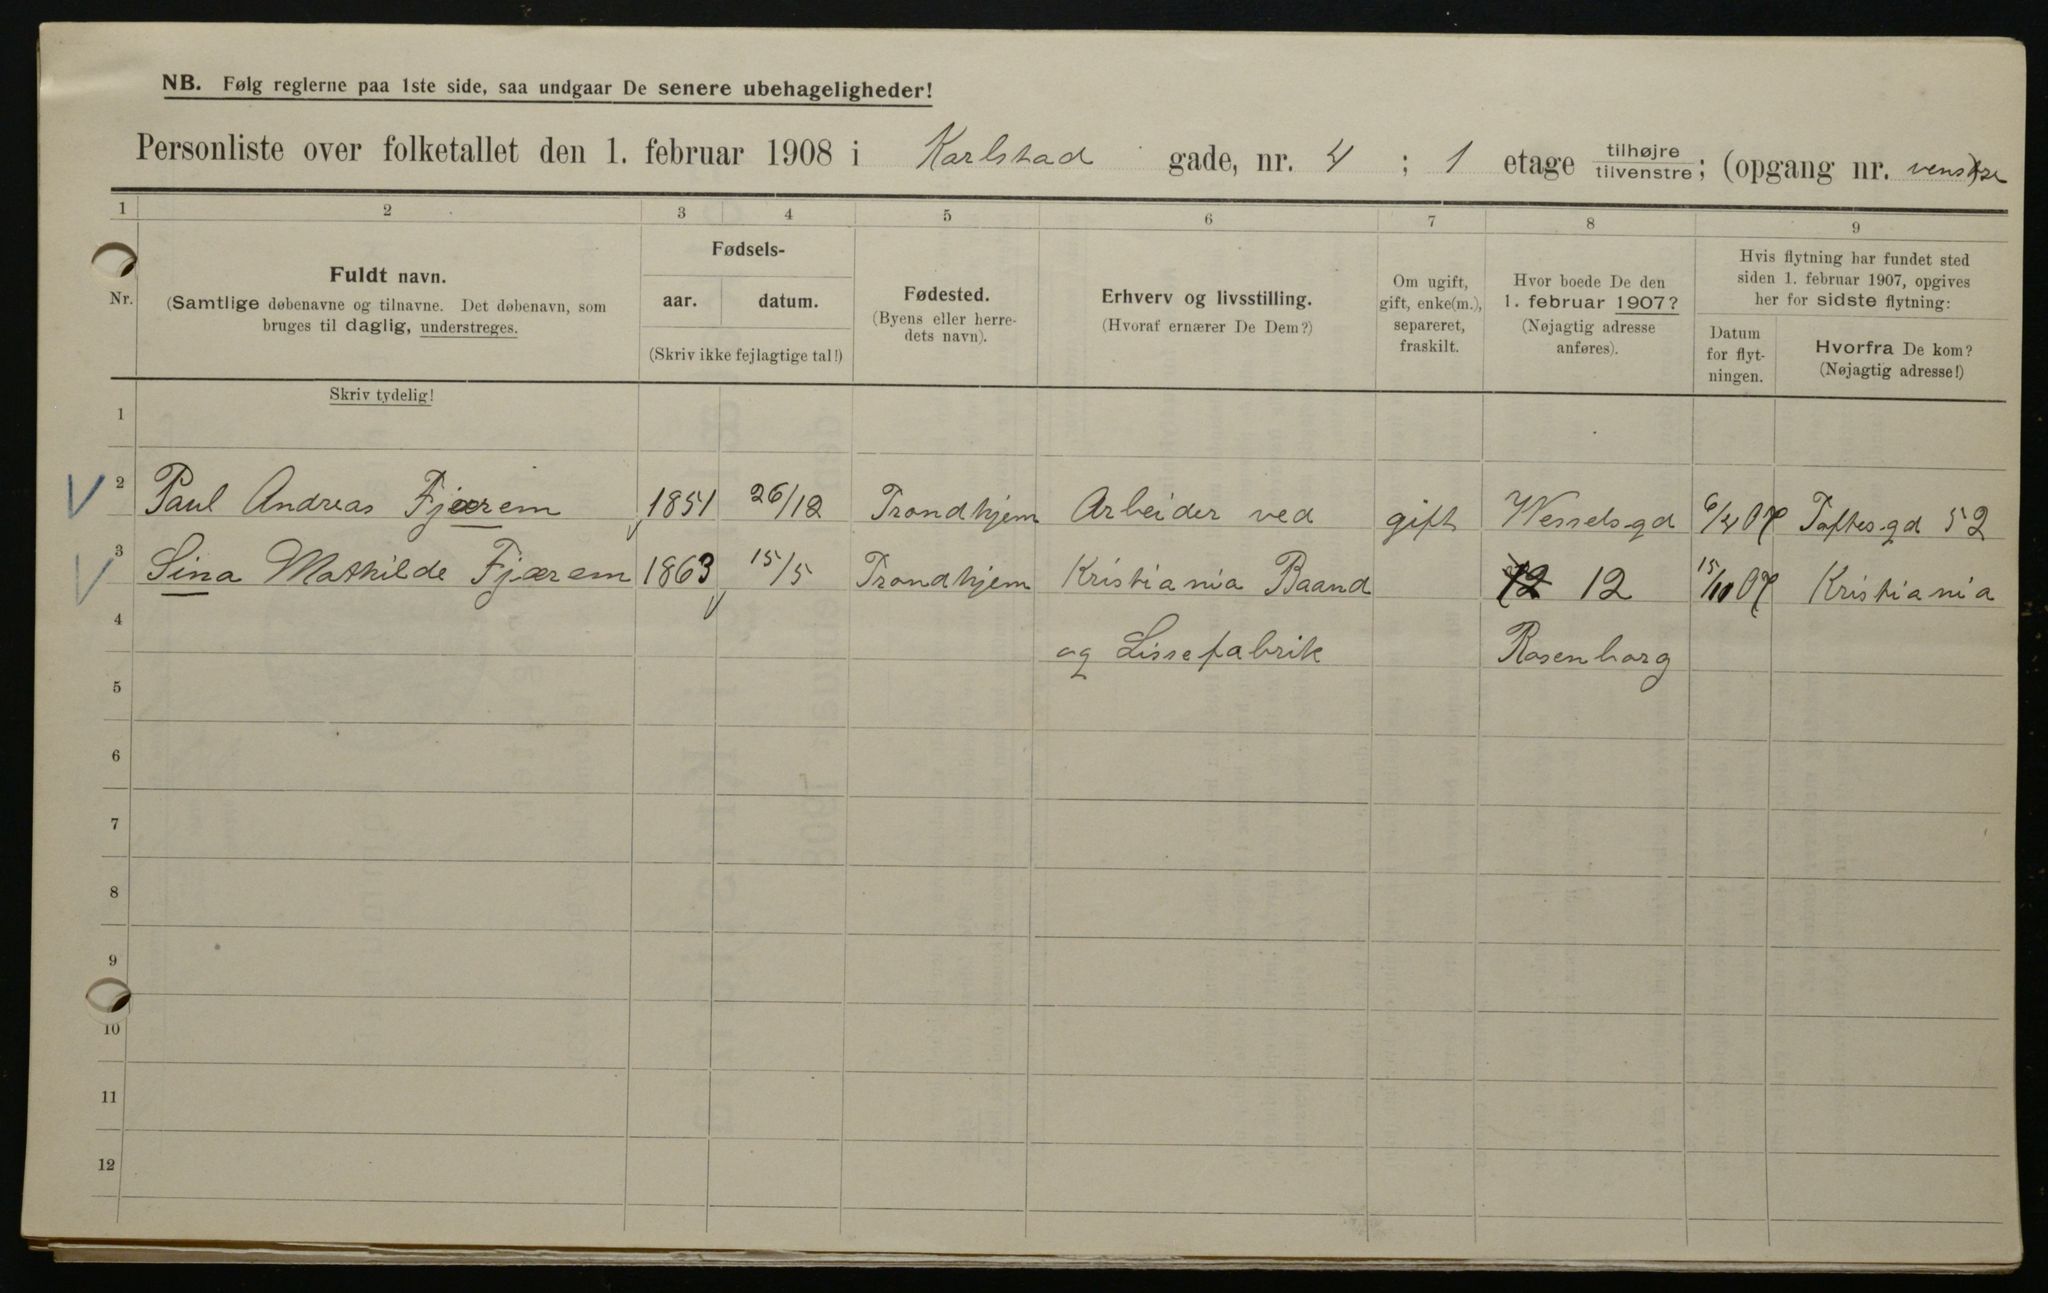 NB. Følg reglerne paa 1ste side, saa undgaar De senere ubehageligheder!
Personliste over folketallet den 1. februar 1908 i Karlstad gade, nr. 4 ; 1 etage tilhøjre tilvenstre; (opgang nr. venstre
1 2 3 4 5 6 7 8 9
Nr.
Fuldt navn.
(Samtlige døbenavne og tilnavne. Det døbenavn, som
bruges til daglig, understreges.
Skriv tydelig!
Fødsels-
aar. datum.
(Skriv ikke fejlagtige tal!)
Fødested.
(Byens eller herre-
dets navn).
Erhverv og livsstilling.
(Hvoraf ernærer De Dem?)
Om ugift,
gift, enke(m.),
separeret,
fraskilt.
Hvor boede De den
1. februar 1907?
(Nøjagtig adresse
anføres).
Hvis flytning har fundet sted
siden 1. februar 1907, opgives
her for sidste flytning:
Datum
for flyt-
ningen.
Hvorfra De kom?
(Nøjagtig adresse!)
1
2 Paul Andreas Fjærem 1851 26/12 Trondhjem Arbeider ved gift Wesselsgd 6/4 07 Toftesgd 52
3 Sina Mathilde Fjærem 1863 15/5 Trondhjem Kristiania Baand 12 12 15/10 07 Kristiania
4 og Lissefabrik Rosenborg
5
6
7
8
9
10
11
12